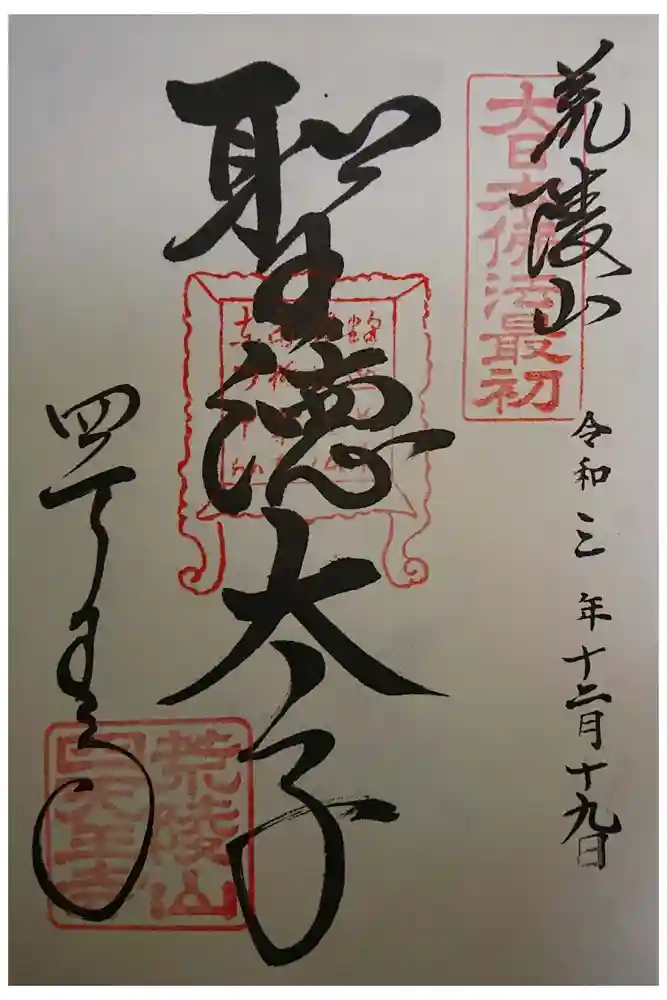 荒陵山
大日本佛法最初
令和三年十二月十九日
聖徳太子
四天王寺
荒陵山
四天王寺